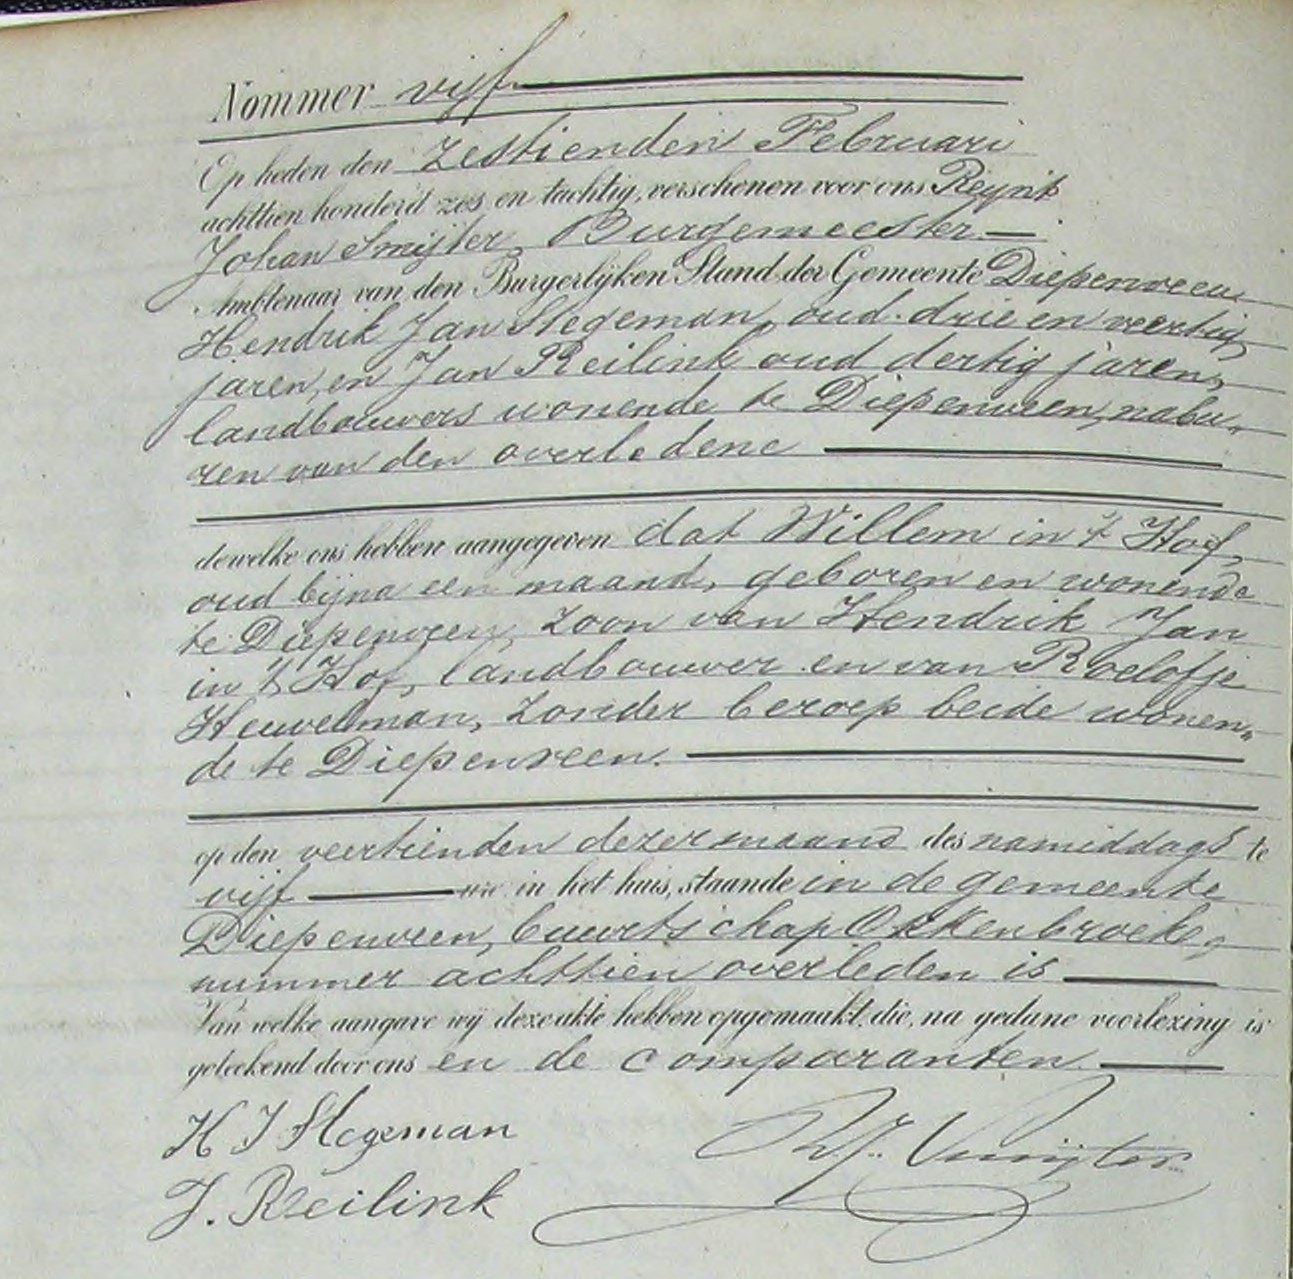 Nommer vijf
Op heden den zestienden Februari
achttien honderd zes en tachtig, verschenen voor ons Reynt
Johan Smijter, Burgemeester
Ambtenaar van den Burgerlijken Stand der Gemeente Diepenveen
Hendrik Jan Stegeman, oud drie en veertig
jaren, en Jan Reilink oud dertig jaren,
landbouwers wonende te Diepenveen, nabu„
ren van den overledene
dewelke ons hebben aangegeven dat Willem in 't Hof,
oud bijna een maand, geboren en wonende
te Diepenveen, zoon van Hendrik Jan
in 't Hof, landbouwer en van Roelofje
Heuvelman, zonder beroep beide wonen„
de te Diepenveen.
op den veertienden dezer maand des namiddags te
vijf ure in het huis, staande in de gemeente
Diepenveen, buurtschap Okkenbroeke,
nummer achttien overleden is
Van welke aangave wij deze akte hebben opgemaakt, die, na gedane voorlezing is
geteekend door ons en de comparanten.
H J Stegeman
J. Reilink